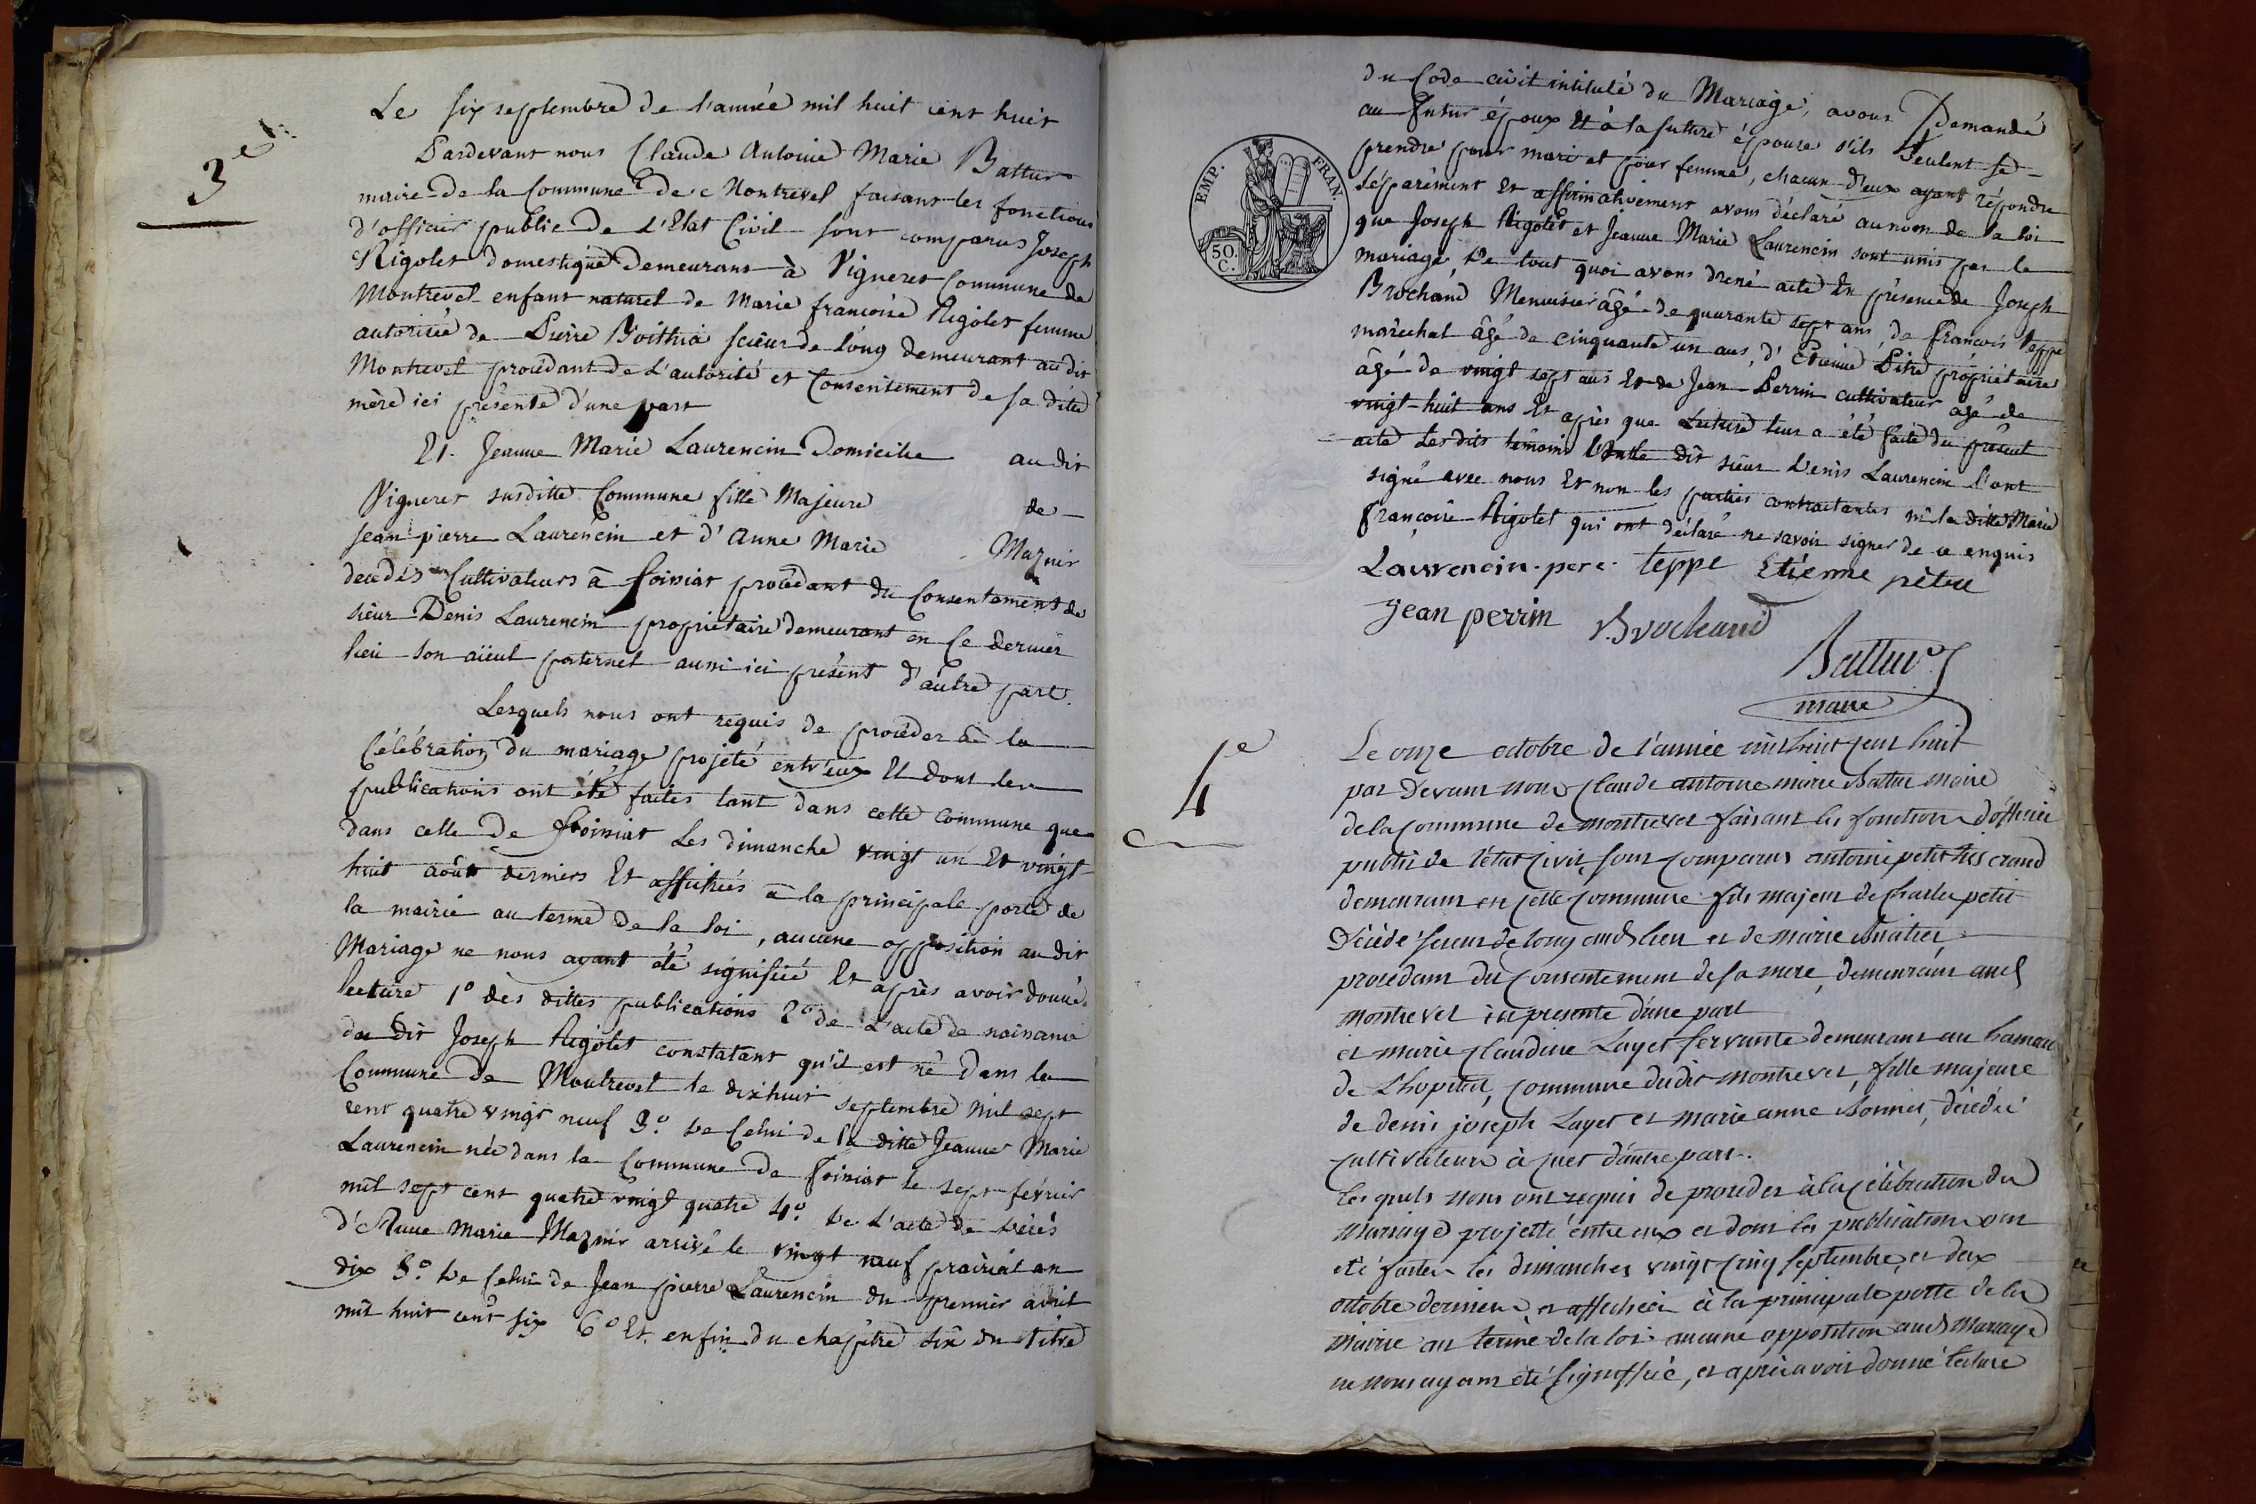 3e
Le six septembre de l'année mil huit cent huit
Pardevant nous Claude Antoine Marie Battur
maire de la Commune de Montrevel faisant les fonctions
d'officier public de L'Etat Civil sont comparus Joseph
Rigolet domestique demeurant à Vigneret Commune de
Montrevel enfant naturel de Marie françoise Rigolet femme
autorisée de Pierre scieur de long demeurant au dit
Montrevel procédant de L'autorité et Consentement de sa dite
mère ici présente d'une part
Et Jeanne Marie Laurencin Domicilie au dit
Vigneret susditte Commune fille Majeure de
Jean pierre Laurencin et d'Anne Marie Maznir
decedés Cultivateurs à foissiat procédant du Consentement de
sieur Denis Laurencin propriétaire demeurant en Ce dernier
lieu son aïeul paternel aussi ici présent d'autre part.
Lesquels nous ont requis de procéder à la
Célébration du mariage projeté entr'eux Et dont les
publications ont été faites tant dans cette commune que
dans celle de foissiat Les dimanche vingt un Et vingt
huit août derniers Et affichées à la principale porte de
la mairie au terme de la loi, aucune opposition au dit
Mariage ne nous ayant été signifiée Et après avoir donné
lecture 1o des dittes publications 2o de L'acte de naissance
du dit Joseph Rigolet constatant qu'il est né Dans la
Commune de Montrevel le dixhuit septembre mil sept
cent quatre vingt neuf 3o. De Celui de la ditte Jeanne Marie
Laurencin née dans la Commune de foissiat le sept février
mil sept cent quatre vingt quatre 4o. De L'acte de décés
d'Anne Marie Maznir arrivé le vingt neuf prairial an
dix 5o. De Celui de Jean pierre Laurencin du premier avril
mil huit cent six 6o Et enfin du chapitre six du titre
EMP. FRAN.
50.
C.
du Code civil intitulé du Mariage, avons Demandé
au futur époux Et à la future épouse s'ils Veulent se
prendre pour mari et pour femme, chacun d'eux ayant répondu
séparément Et affirmativement avons déclaré au nom de la loi
que Joseph Rigolet et Jeanne Marie Laurencin sont unis par le
mariage De tout quoi avons dressé acte En présence de Joseph
Brochand Menuisier âgé de quarante sept ans, de François teppe
maréchal âgé de cinquante un ans, d'Etienne Pitre propriétaire
âgé de vingt sept ans Et de Jean Perrin cultivateur âgé de
vingt-huit ans Et après que Lecture leur a été faite du présent
acte Les dits témoins dit sieur Denis Laurencin l'ont
signé avec nous Et non les parties contractantes ni la ditte Marie
Françoise Rigolet qui ont déclaré ne savoir signer de ce enquis
Laurencin . pere . teppe Etienne pètre
jean perrin Brochand
Battur
maire
4e
Le onze octobre de l'année mil huit cent huit
par devant nous Claude antoine marie Battur maire
de la commune de montrevel faisant les fonctions d'officier
public de l'état Civil sont comparus antoine petit
demeurant en cette commune fils majeur de Charles petit
décédé scieur de long aud lieu et de marie
procédant du consentement de sa mere, demeurant aud
montrevel ici présente d'une part
et marie Claudine Layet servante demeurant au hameau
de L'hopital, commune dudit montrevel, fille majeure
de denis joseph Layet et marie anne Bonnet, décédés
cultivateurs à d'autre part.
les quels nous ont requis de procéder à la célébration du
mariage projetté entre eux et dont les publications ont
été faites les dimanches vingt cinq septembre et deux
octobre derniers et affichées à la principale porte de la
mairie au terme de la loi aucune opposition aud mariage
ne nous ayant été signiffiée, et après avoir donné lecture